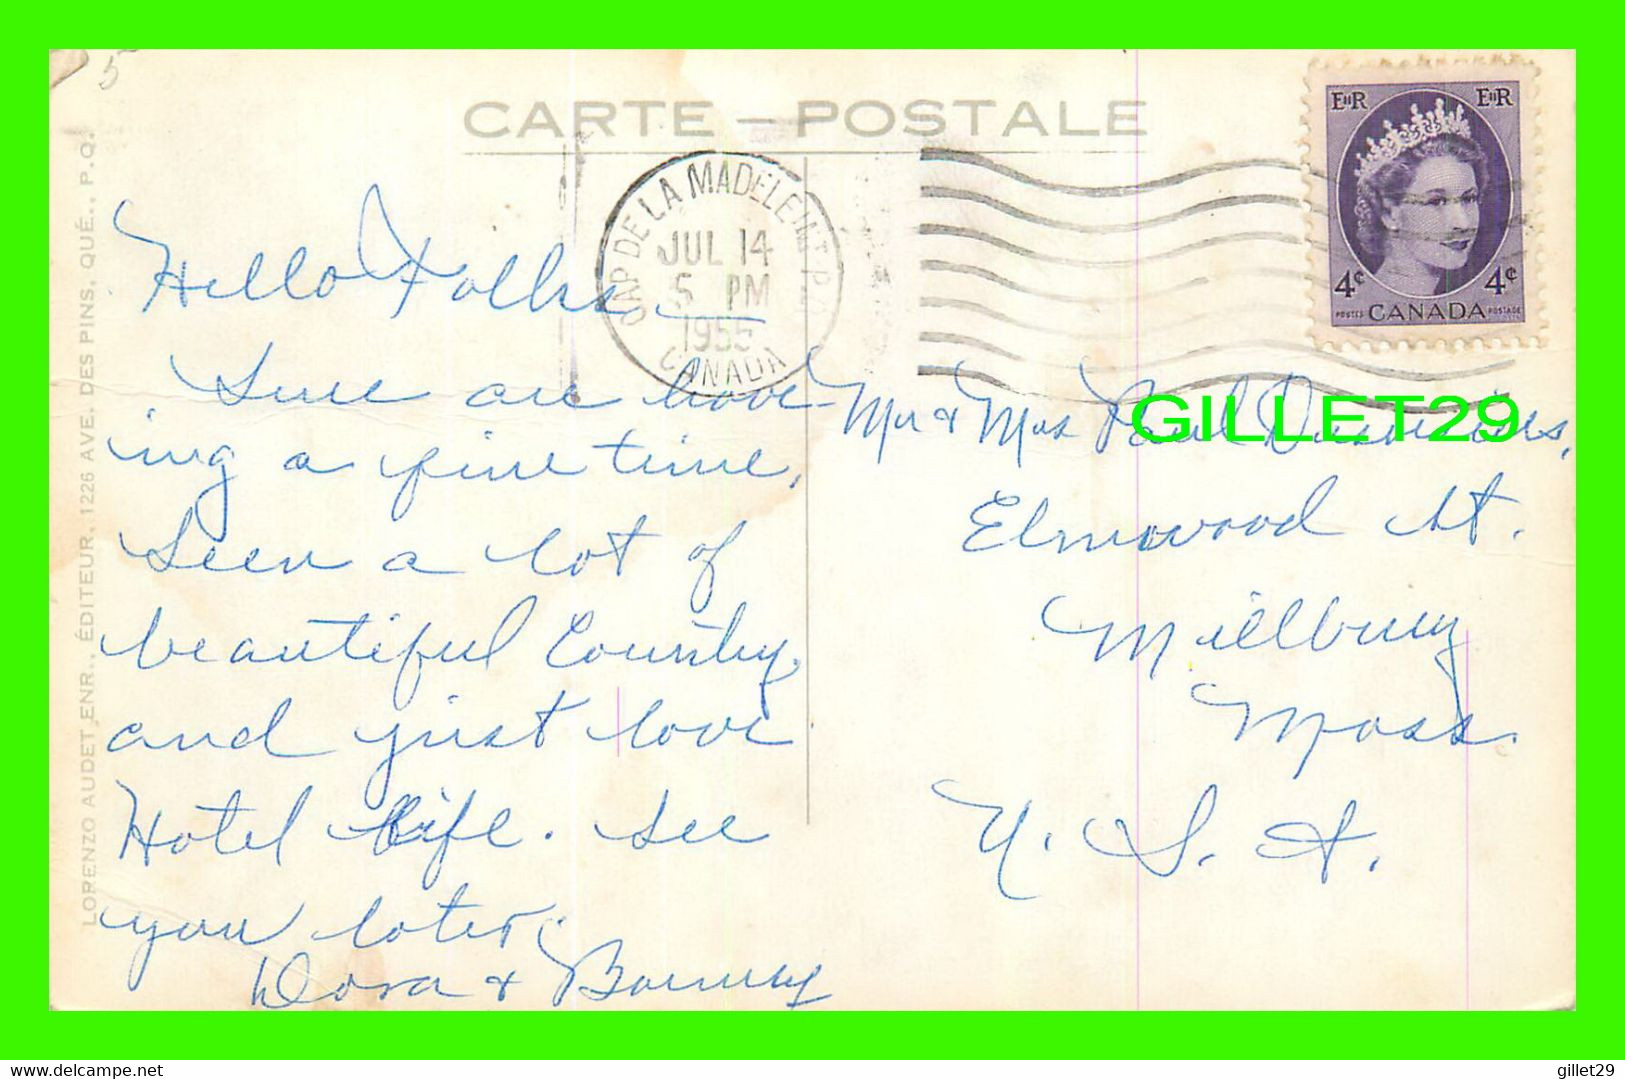 5
CARTE – POSTALE
CAP DE LA MADELEINE P.Q.
JUL 14
5 PM
1955
CANADA
EIIR EIIR
4¢ 4¢
POSTES CANADA POSTAGE
Hello Folks
Sure are hav
ing a fine time,
Seen a lot of
beautiful Country
and just love
Hotel life. See
you later.
Dora & Barney
Mr & Mrs Paul
Elmwood St.
Millbury
Mass.
U. S. A.
GILLET29
LORENZO AUDET ENR., ÉDITEUR, 1226 AVE. DES PINS, QUÉ., P.Q.
www.delcampe.net
gillet29